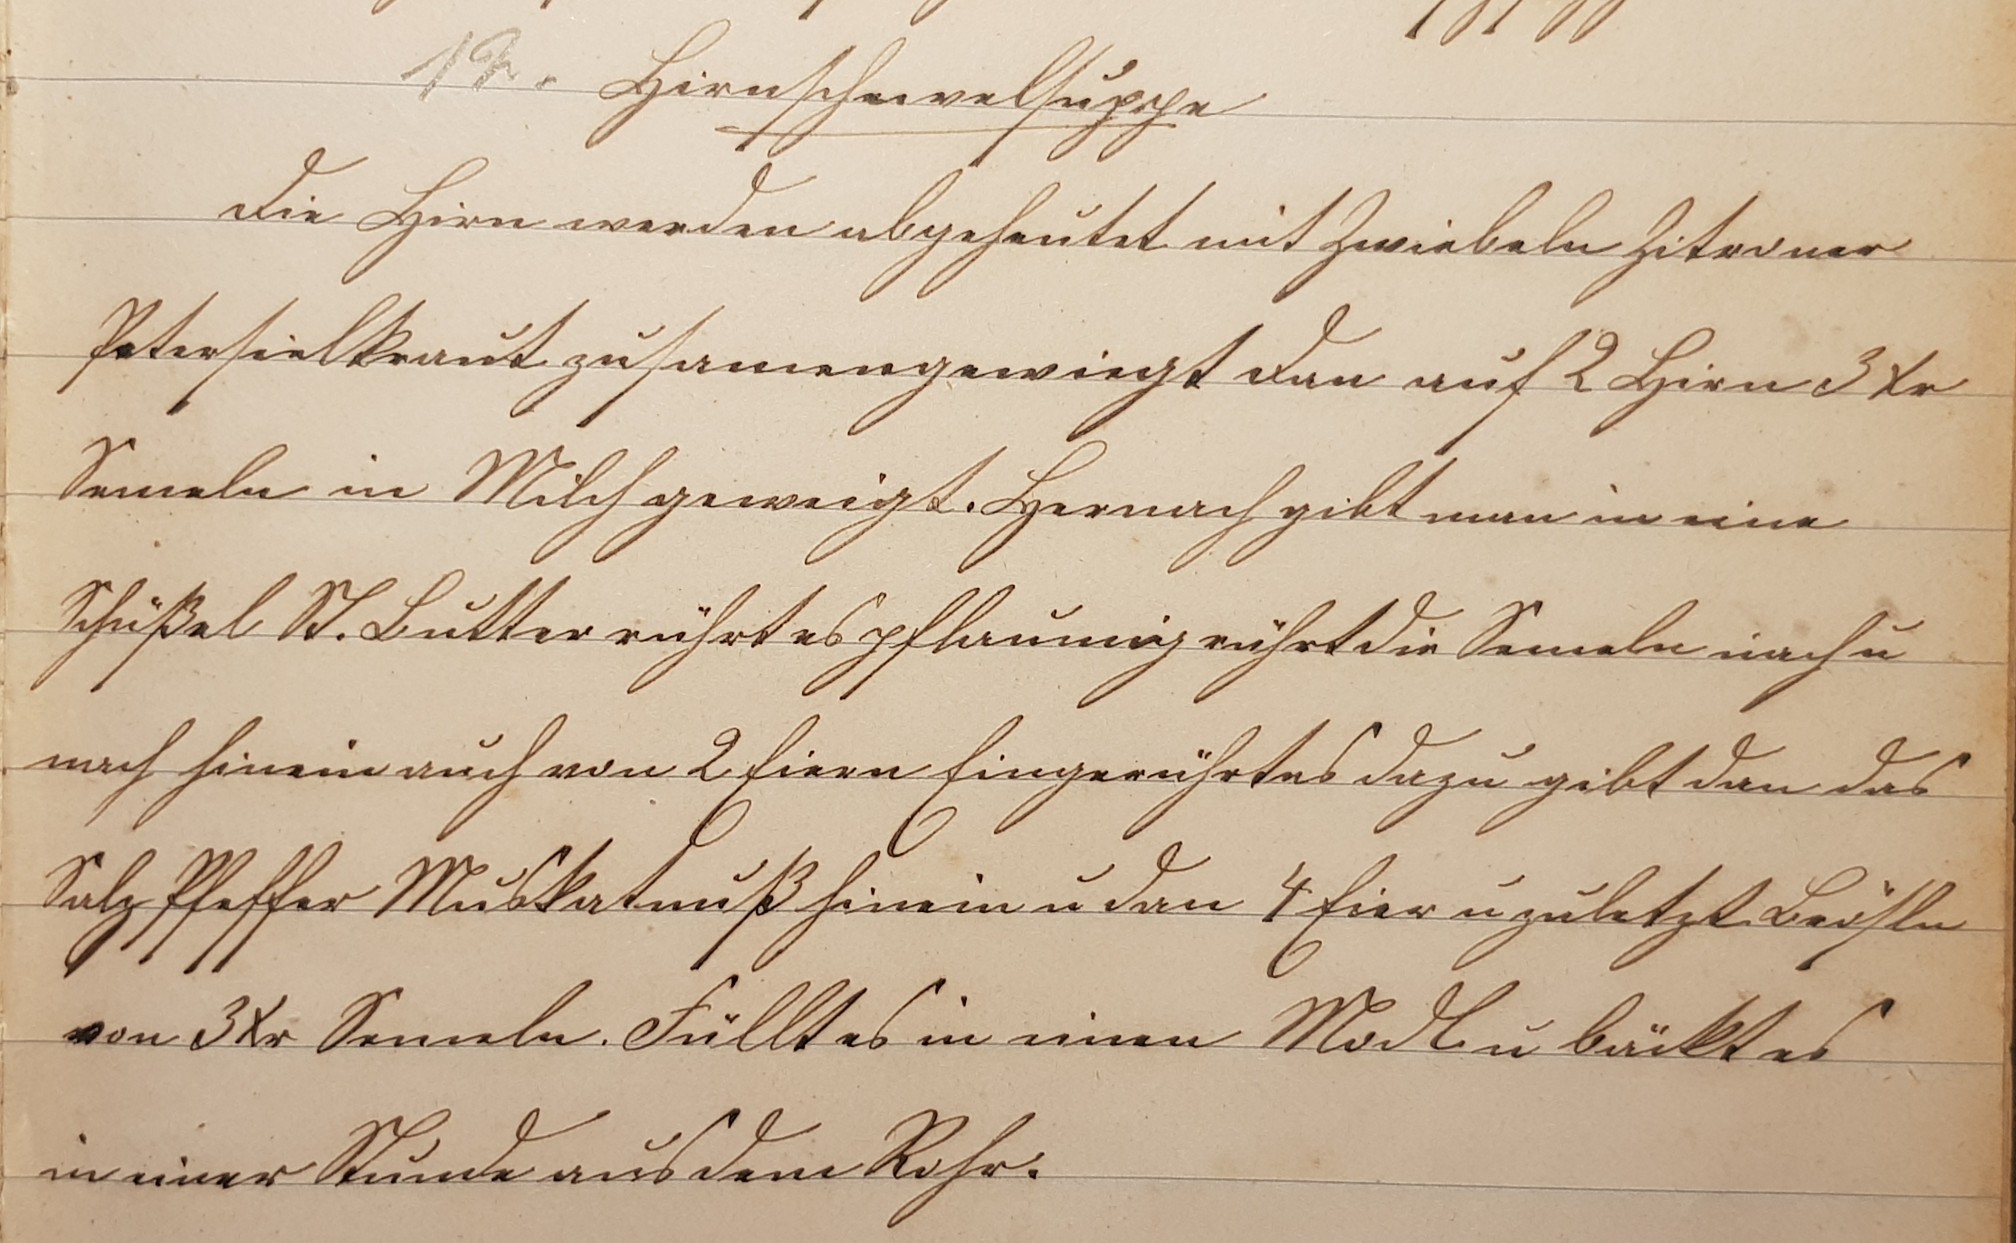 12. Hirnschewelsuppe
Die Hirn werden abgeheutet mit Zwiebeln Zitroner
Petersielkraut zusamengewiegt dan auf 2 Hirn 3 Xr
Semeln in Milch geweigt. Hernach gibt man in eine
Schüßel St. Butter rührt es pflaumig rührt die Semeln nach u
nach hinein auch von 2 Eiern Eingerührtes dazu gibt dan das
Salz Pfeffer Muskatnuß hinein u dan 4 Eier u zuletzt Brösln
von 3 Xr Semeln. Füllt es in einen Modl u bäckt es
in einer Stunde aus dem Rohr.